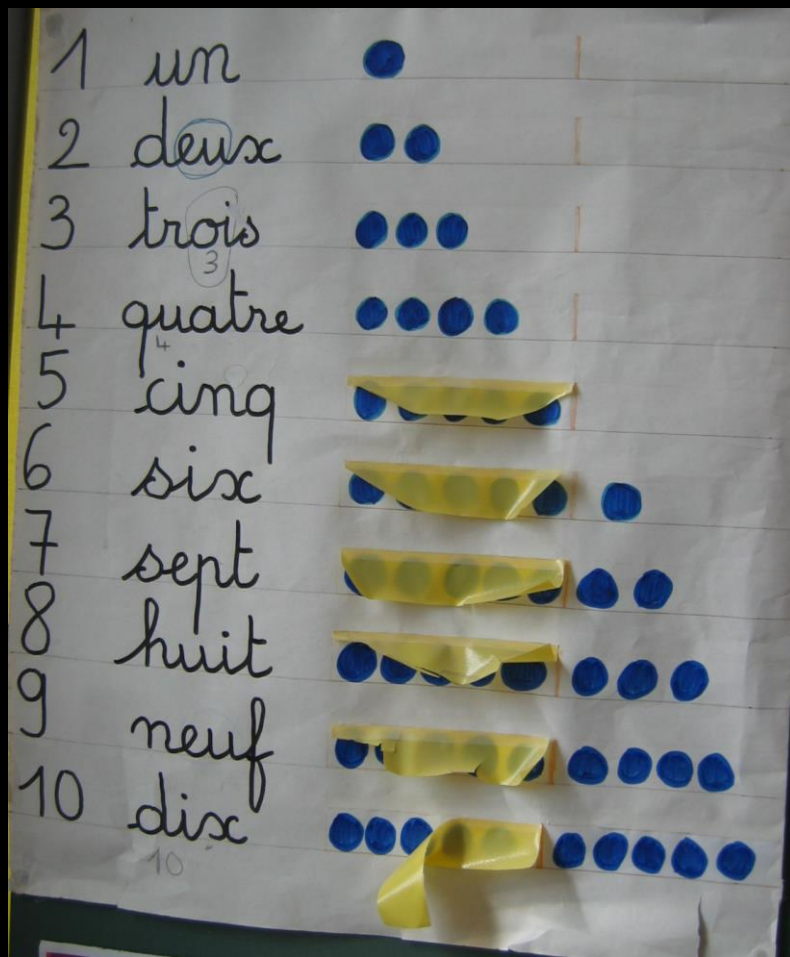 1 un
2 deux
3 trois
3
4 quatre
4
5 cinq
6 six
7 sept
8 huit
9 neuf
10 dix
10